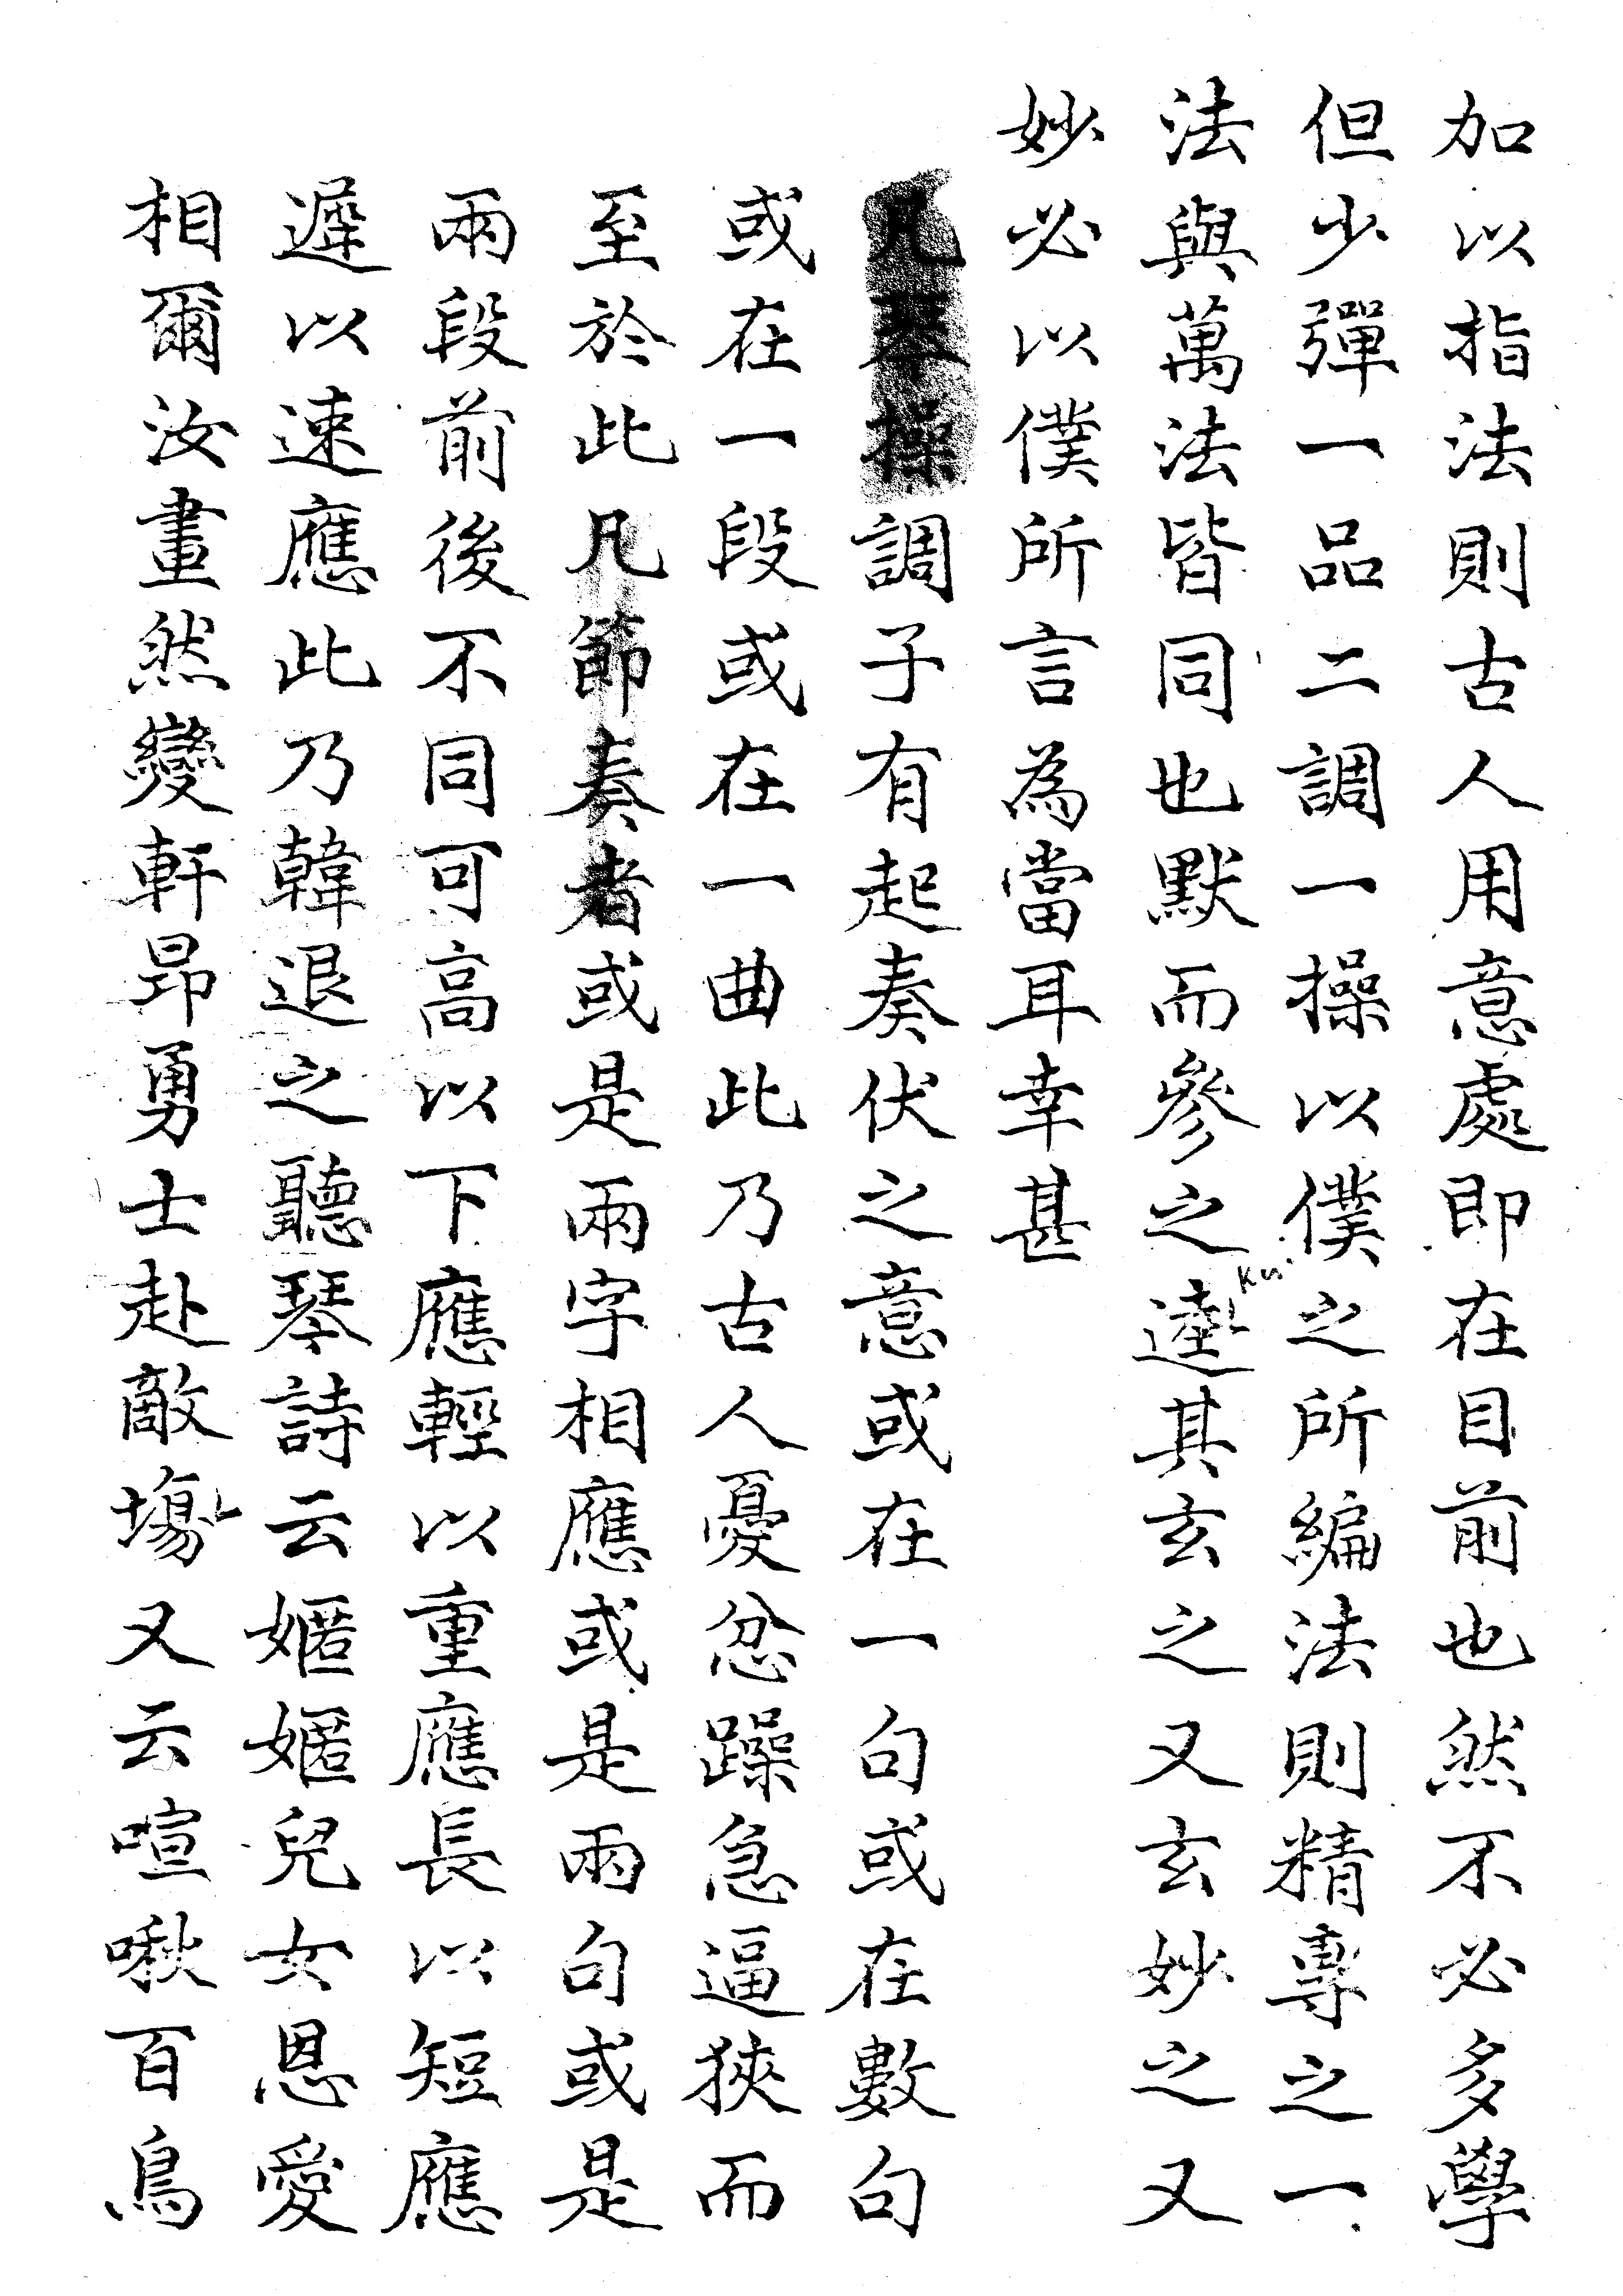 加以指法則古人用意處即在目前也然不必多學
但少彈一品二調一操以僕之所編法則精專之一
法與萬法皆同也默而參之逵其玄之又玄妙之又
妙必以僕所言為當耳幸甚
凡琴操調子有起奏伏之意或在一句或在數句
或在一段或在一曲此乃古人憂忿躁急逼狹而
至於此凡節奏者或是兩字相應或是兩句或是
兩段前後不同可高以下應輕以重應長以短應
遲以速應此乃韓退之聽琴詩云嫟嫟兒女恩愛
相爾汝畫然變軒昂勇士赴敵塲又云喧啾百鳥